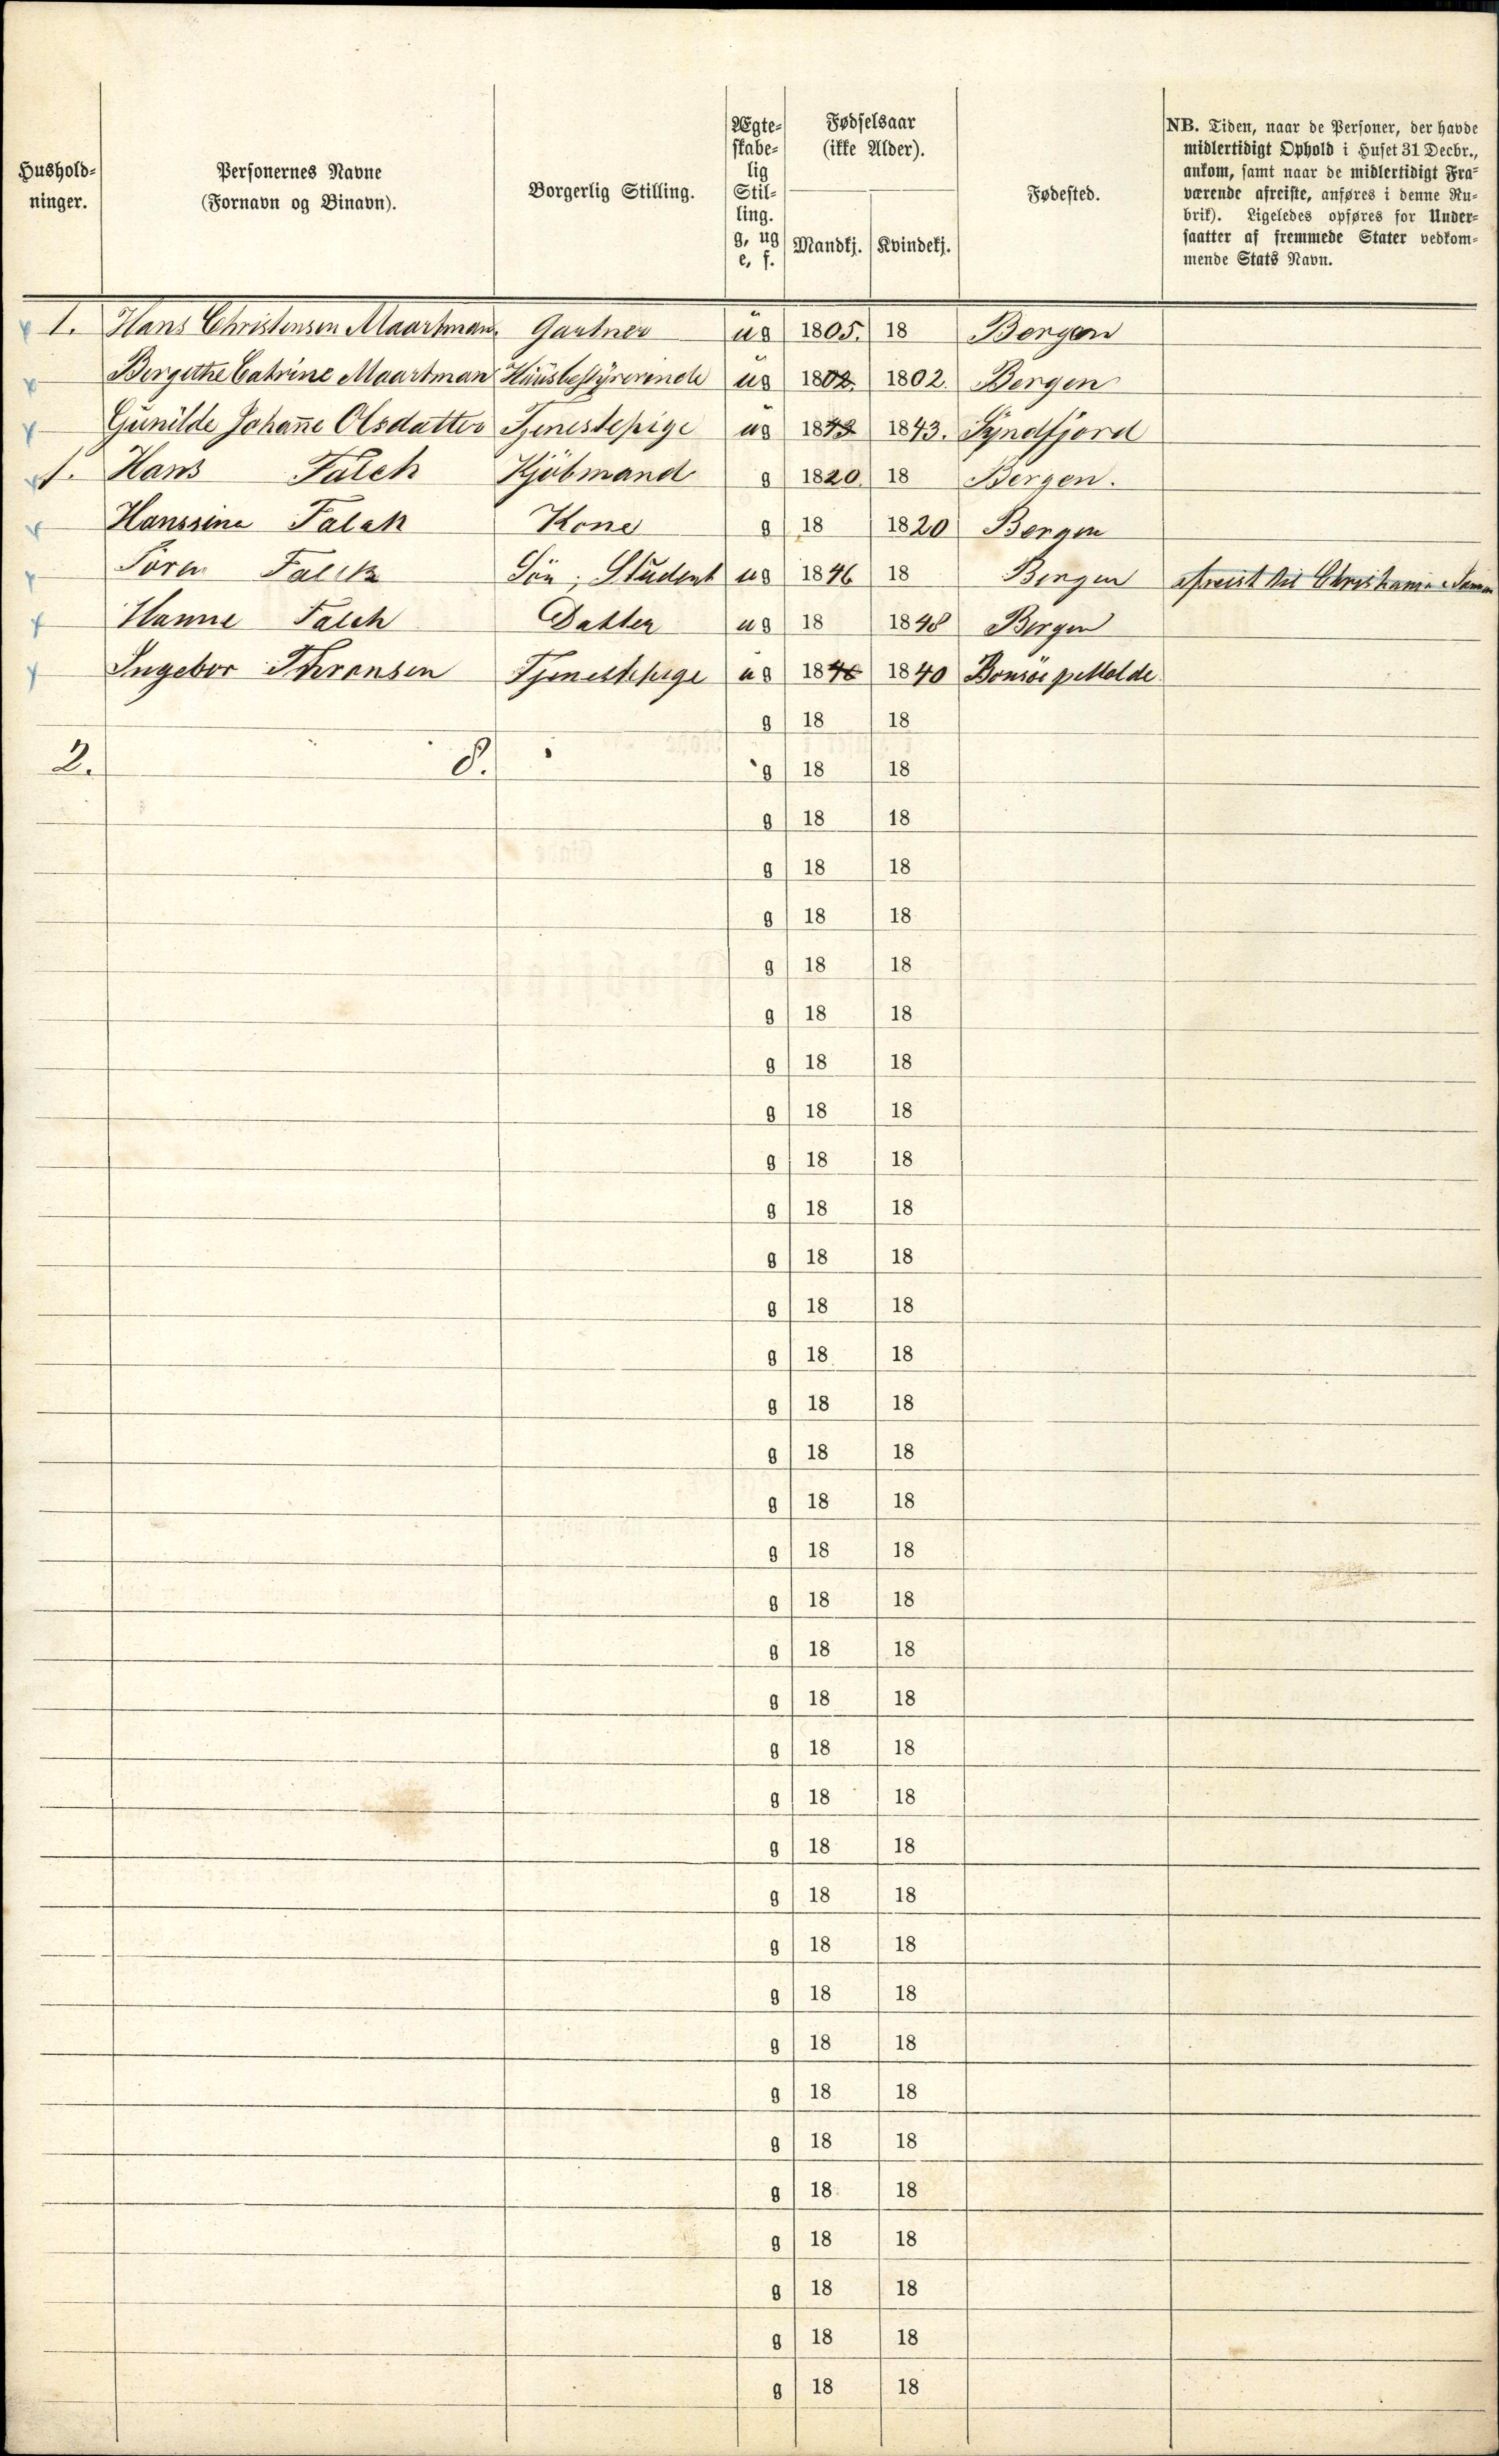 Hushold-
ninger.
Personernes Navne
(Fornavn og Binavn).
Borgerlig Stilling.
Ægte-
skabe-
lig
Stil-
ling.
g, ug
e, f.
Fødselsaar
(ikke Alder).
Mandkj.
Kvindekj.
Fødested.
NB. Tiden, naar de Personer, der havde
midlertidigt Ophold i Huset 31 Decbr.,
ankom, samt naar de midlertidigt Fra-
værende afreiste, anføres i denne Ru-
brik). Ligeledes opføres for Under-
saatter af fremmede Stater vedkom-
mende Stats Navn.
1. Hans Christensen Maartman Gartner ug 1805. 18 Bergen
Bergethe Catrine Maartman Huusbestyrerinde ug 1802. 1802. Bergen
Gunilde Johanne Olsdatter Tjenestepige ug 1843 1843. Syndfjord
1. Hans Falch Kjöbmand g 1820. 18 Bergen.
Hanssine Falck Kone g 18 1820 Bergen
Sören Falck Sön; Student ug 1846 18 Bergen afreist til Christiania
Hanne Falch Datter ug 18 1848 Bergen
Ingebor Thronsen Tjenestepige ug 1840 1840 Molde
g 18 18
2. 8. g 18 18
g 18 18
g 18 18
g 18 18
g 18 18
g 18 18
g 18 18
g 18 18
g 18 18
g 18 18
g 18 18
g 18 18
g 18 18
g 18 18
g 18 18
g 18 18
g 18 18
g 18 18
g 18 18
g 18 18
g 18 18
g 18 18
g 18 18
g 18 18
g 18 18
g 18 18
g 18 18
g 18 18
g 18 18
g 18 18
g 18 18
g 18 18
g 18 18
g 18 18